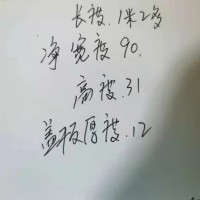 长度.1米2多
净宽度90.
高度.31
盖板厚度.12